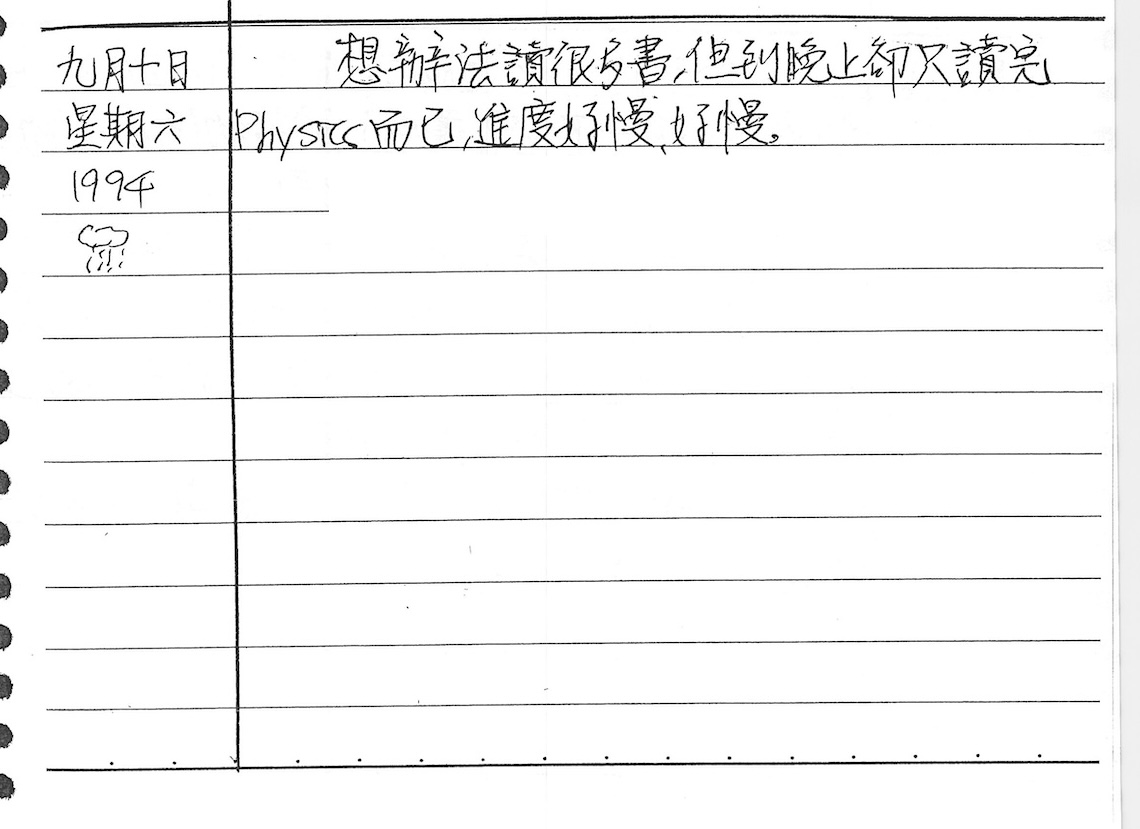 九月十日
星期六
1994
想辦法讀很多書,但到晚上卻只讀完
Physics而已,進度好慢、好慢。